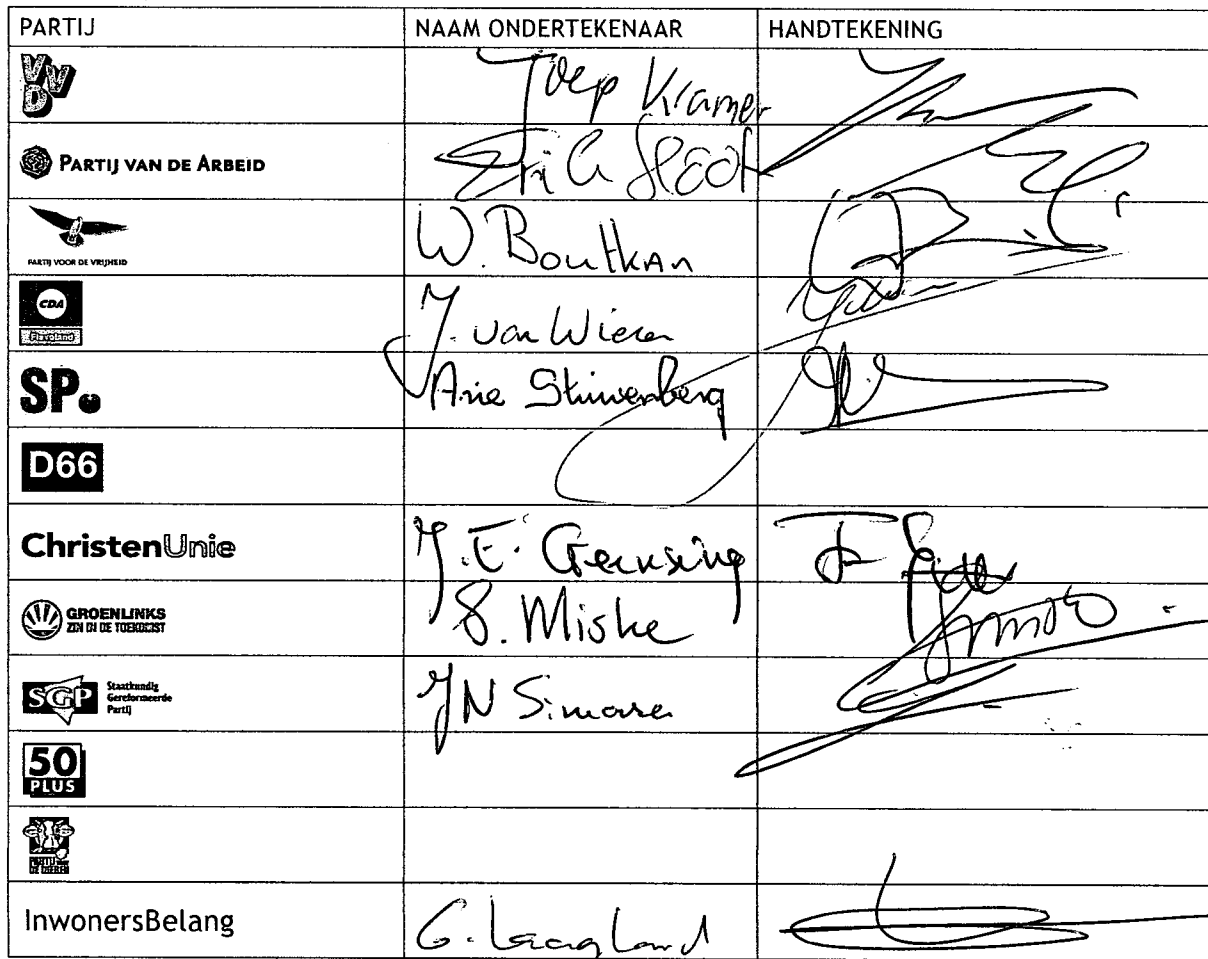 PARTIJ NAAM ONDERTEKENAAR HANDTEKENING
VVD Joep Kramer
PARTIJ VAN DE ARBEID
PARTIJ VOOR DE VRIJHEID W. Boutkan
CDA Flevoland J. van Wieren
SP. Arie Stuivenberg
D66
ChristenUnie J.E.
GROENLINKS S. Miske
ZIN IN DE TOEKOMST
SGP Staatkundig Gereformeerde Partij JN
50 PLUS
PARTIJ voor DE DIEREN
InwonersBelang G. Laagland